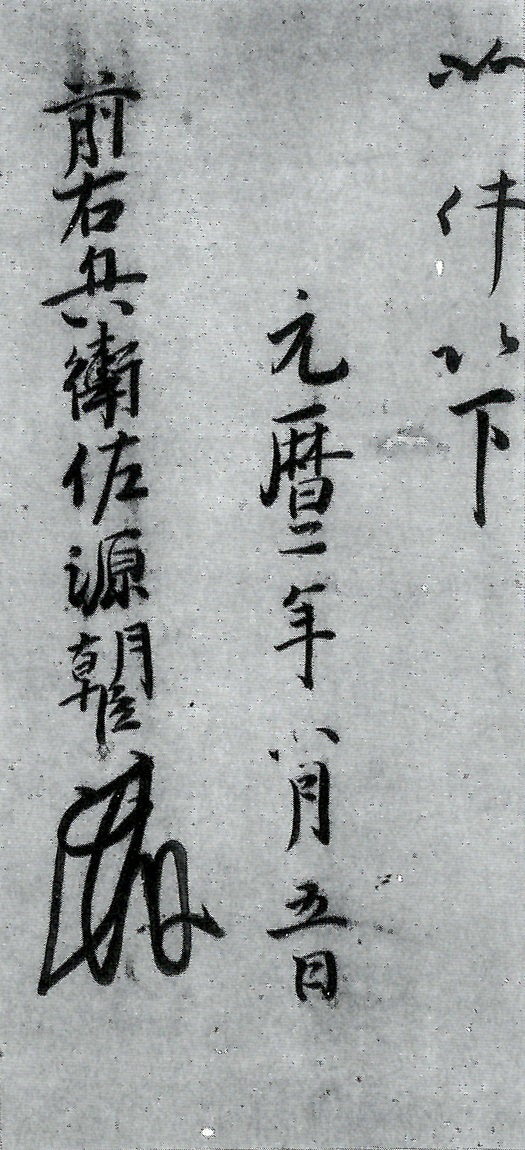 如件以下
元暦二年八月五日
前右兵衛佐源朝臣